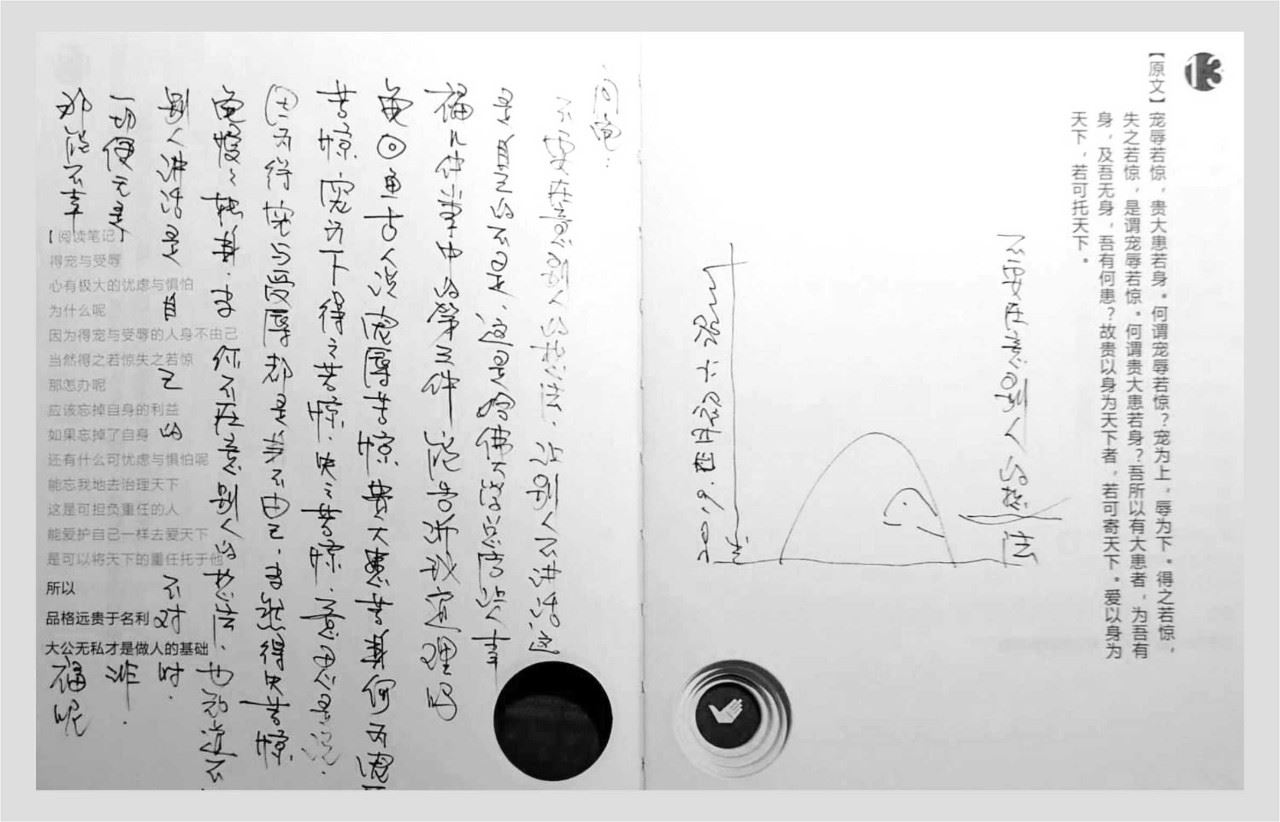 13
【原文】宠辱若惊，贵大患若身。何谓宠辱若惊？宠为上，辱为下。得之若惊，
失之若惊，是谓宠辱若惊。何谓贵大患若身？吾所以有大患者，为吾有
身，及吾无身，吾有何患？故贵以身为天下者，若可寄天下。爱以身为
天下，若可托天下。
不要在意别人的想法
问龟：
不要在意别人的想法，让别人不讲话这
是真正的不是，这是哈佛大学总字让人幸
福几件事中的第三件 能告诉我道理吗
龟回鱼古人说宠辱若惊 贵大患若身何为宠
若惊 宠为下得之若惊，失之若惊，意思是说，
因为得宠与受辱都是身不由己，当然得失若惊
龟慢慢 你不在意别人的想法，也知道不
别人讲话是自己的不对时，
一切便无是非，
那能不幸福呢
【阅读笔记】
得宠与受辱
心有极大的忧虑与惧怕
为什么呢
因为得宠与受辱的人身不由己
当然得之若惊失之若惊
那怎办呢
应该忘掉自身的利益
如果忘掉了自身
还有什么可忧虑与惧怕呢
能忘我地去治理天下
这是可担负重任的人
能爱护自己一样去爱天下
是可以将天下的重任托于他
所以
品格远贵于名利
大公无私才是做人的基础